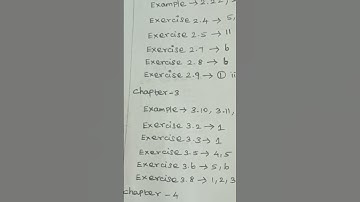 Example → 2.2
Exercise 2.4 → 5,
Exercise 2.5 → 11
Exercise 2.7 → 6
Exercise 2.8 → 6
Exercise 2.9 → ① ii
Chapter-3
Example → 3.10, 3.11,
Exercise 3.2 → 1
Exercise 3.3 → 1
Exercise 3.5 → 4,5
Exercise 3.6 → 5,6
Exercise 3.8 → 1,2,3
Chapter - 4